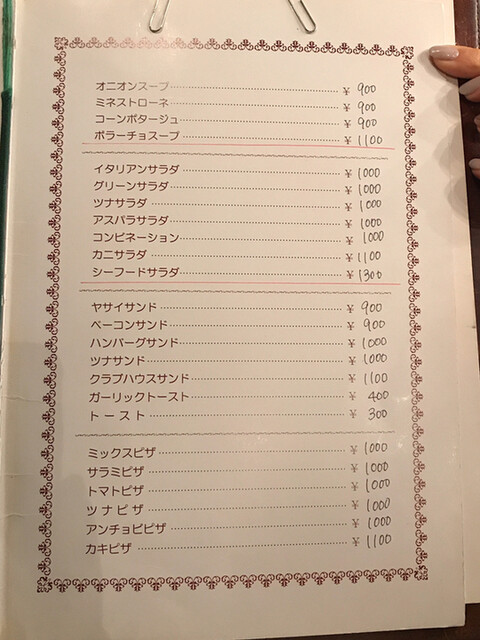 オニオンスープ ¥ 900
ミネストローネ ¥ 900
コーンポタージュ ¥ 900
ボラーチョスープ ¥ 1100
イタリアンサラダ ¥ 1000
グリーンサラダ ¥ 1000
ツナサラダ ¥ 1000
アスパラサラダ ¥ 1000
コンビネーション ¥ 1000
カニサラダ ¥ 1100
シーフードサラダ ¥ 1300
ヤサイサンド ¥ 900
ベーコンサンド ¥ 900
ハンバーグサンド ¥ 1000
ツナサンド ¥ 1000
クラブハウスサンド ¥ 1100
ガーリックトースト ¥ 400
トースト ¥ 300
ミックスピザ ¥ 1000
サラミピザ ¥ 1000
トマトピザ ¥ 1000
ツナピザ ¥ 1000
アンチョビピザ ¥ 1000
カキピザ ¥ 1100